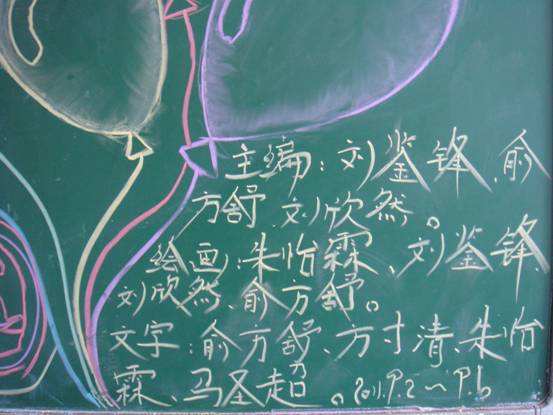 主编：刘鉴锋、俞
方舒、刘欣然。
绘画：朱怡霖、刘鉴锋、
刘欣然、俞方舒。
文字：俞方舒、方寸清、朱怡
霖、马圣超。